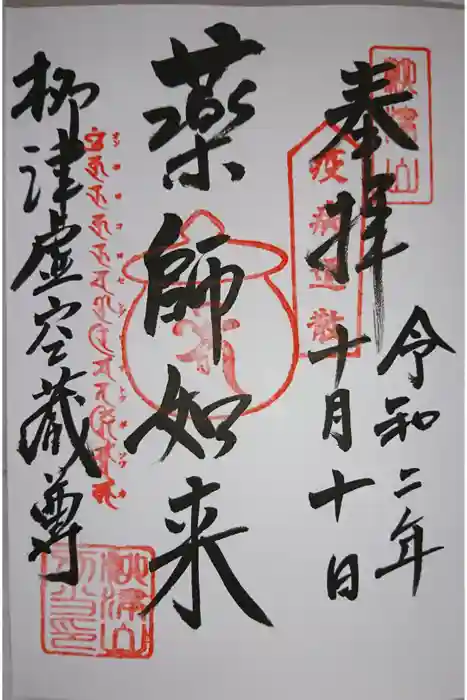 奉拝
令和二年
十月十日
疫病退散
薬師如来
柳津虚空蔵尊
柳津山